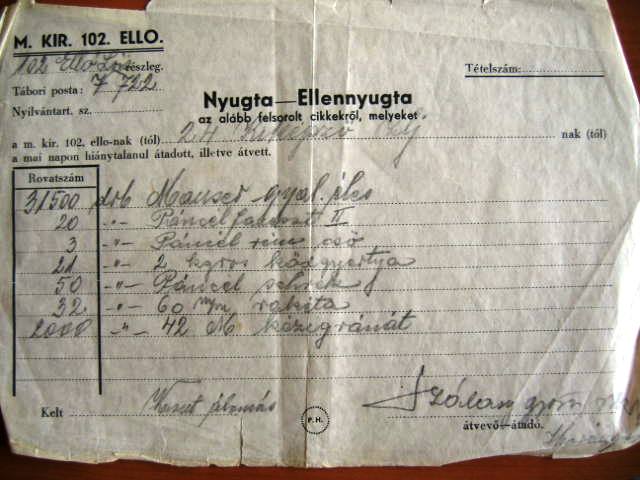 M. KIR. 102. ELLO.
102 Ello részleg.
Tábori posta: 722
Nyilvántart. sz.
Tételszám:
Nyugta—Ellennyugta
az alább felsorolt cikkekről, melyeket
a m. kir. 102. ello-nak (tól) 24 nak (tól)
a mai napon hiánytalanul átadott, illetve átvett.
Rovatszám
31500 drb Mauser gyal. éles
20 -"- Páncél II
3 -"- Páncél cső
21 -"- 2 kgros ködgyertya
50 -"- Páncél schrek
32. -"- 60 m/m rakéta
2000 -"- 42 M kézigránát
Kelt
P. H.
átvevő—átadó.